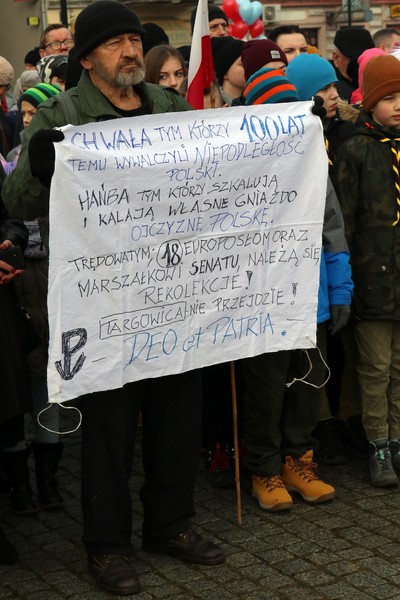 CHWAŁA TYM KTÓRZY 100 LAT
TEMU WYWALCZYLI NIEPODLEGŁOŚĆ
POLSKI.
HAŃBA TYM KTÓRZY SZKALUJĄ
I KALAJĄ WŁASNE GNIAZDO
OJCZYZNĘ POLSKĘ.
TRĘDOWATYM: 18 EUROPOSŁOM ORAZ
MARSZAŁKOWI SENATU, NALEŻĄ SIĘ
REKOLEKCJE!
TARGOWICA NIE PRZEJDZIE!
DEO et PATRIA.